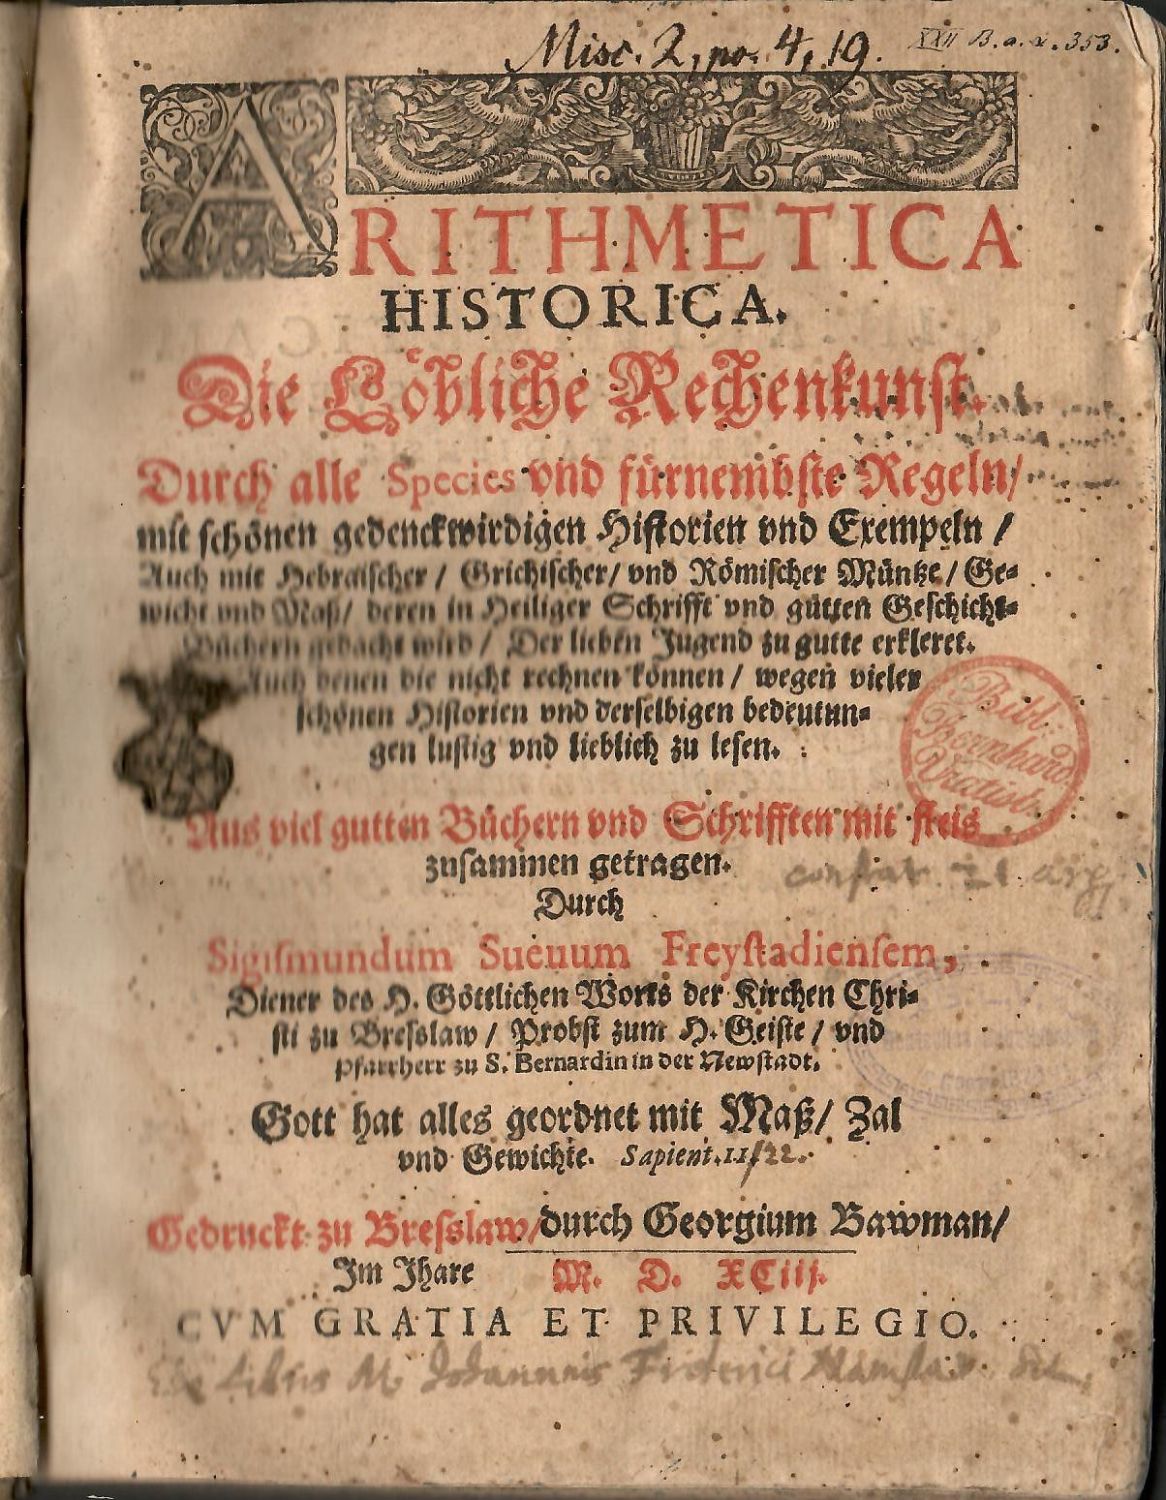 Misc. 2, po. 4, 19.
XXII B. a. x. 353.
ARITHMETICA
HISTORICA.
Die Löbliche Rechenkunst.
Durch alle Species vnd fürnembste Regeln/
mit schönen gedenckwirdigen Historien vnd Exempeln /
Auch mit Hebraischer / Grichischer / vnd Römischer Müntze / Ge-
wicht vnd Maß / deren in Heiliger Schrifft vnd gutten Geschicht-
Büchern gedacht wird / Der lieben Jugend zu gutte erkleret.
Auch denen die nicht rechnen können / wegen vieler
schönen Historien vnd derselbigen bedeutun-
gen lustig vnd lieblich zu lesen.
Bibl:
Bernhard.
Vratisl.
Aus viel gutten Büchern vnd Schrifften mit fleis
zusammen getragen.
Durch
Sigismundum Sueuum Freystadiensem,
Diener des H. Göttlichen Worts der Kirchen Chri-
sti zu Bresslaw / Probst zum H. Geiste / vnd
Pfarrherr zu S. Bernardin in der Newstadt.
Gott hat alles geordnet mit Maß / Zal
vnd Gewichte. Sapient. 11/22.
Gedruckt zu Bresslaw / durch Georgium Bawman /
Im Jhare M. D. XCiij.
CVM GRATIA ET PRIVILEGIO.
Ex Libris M. Johannis Friderici